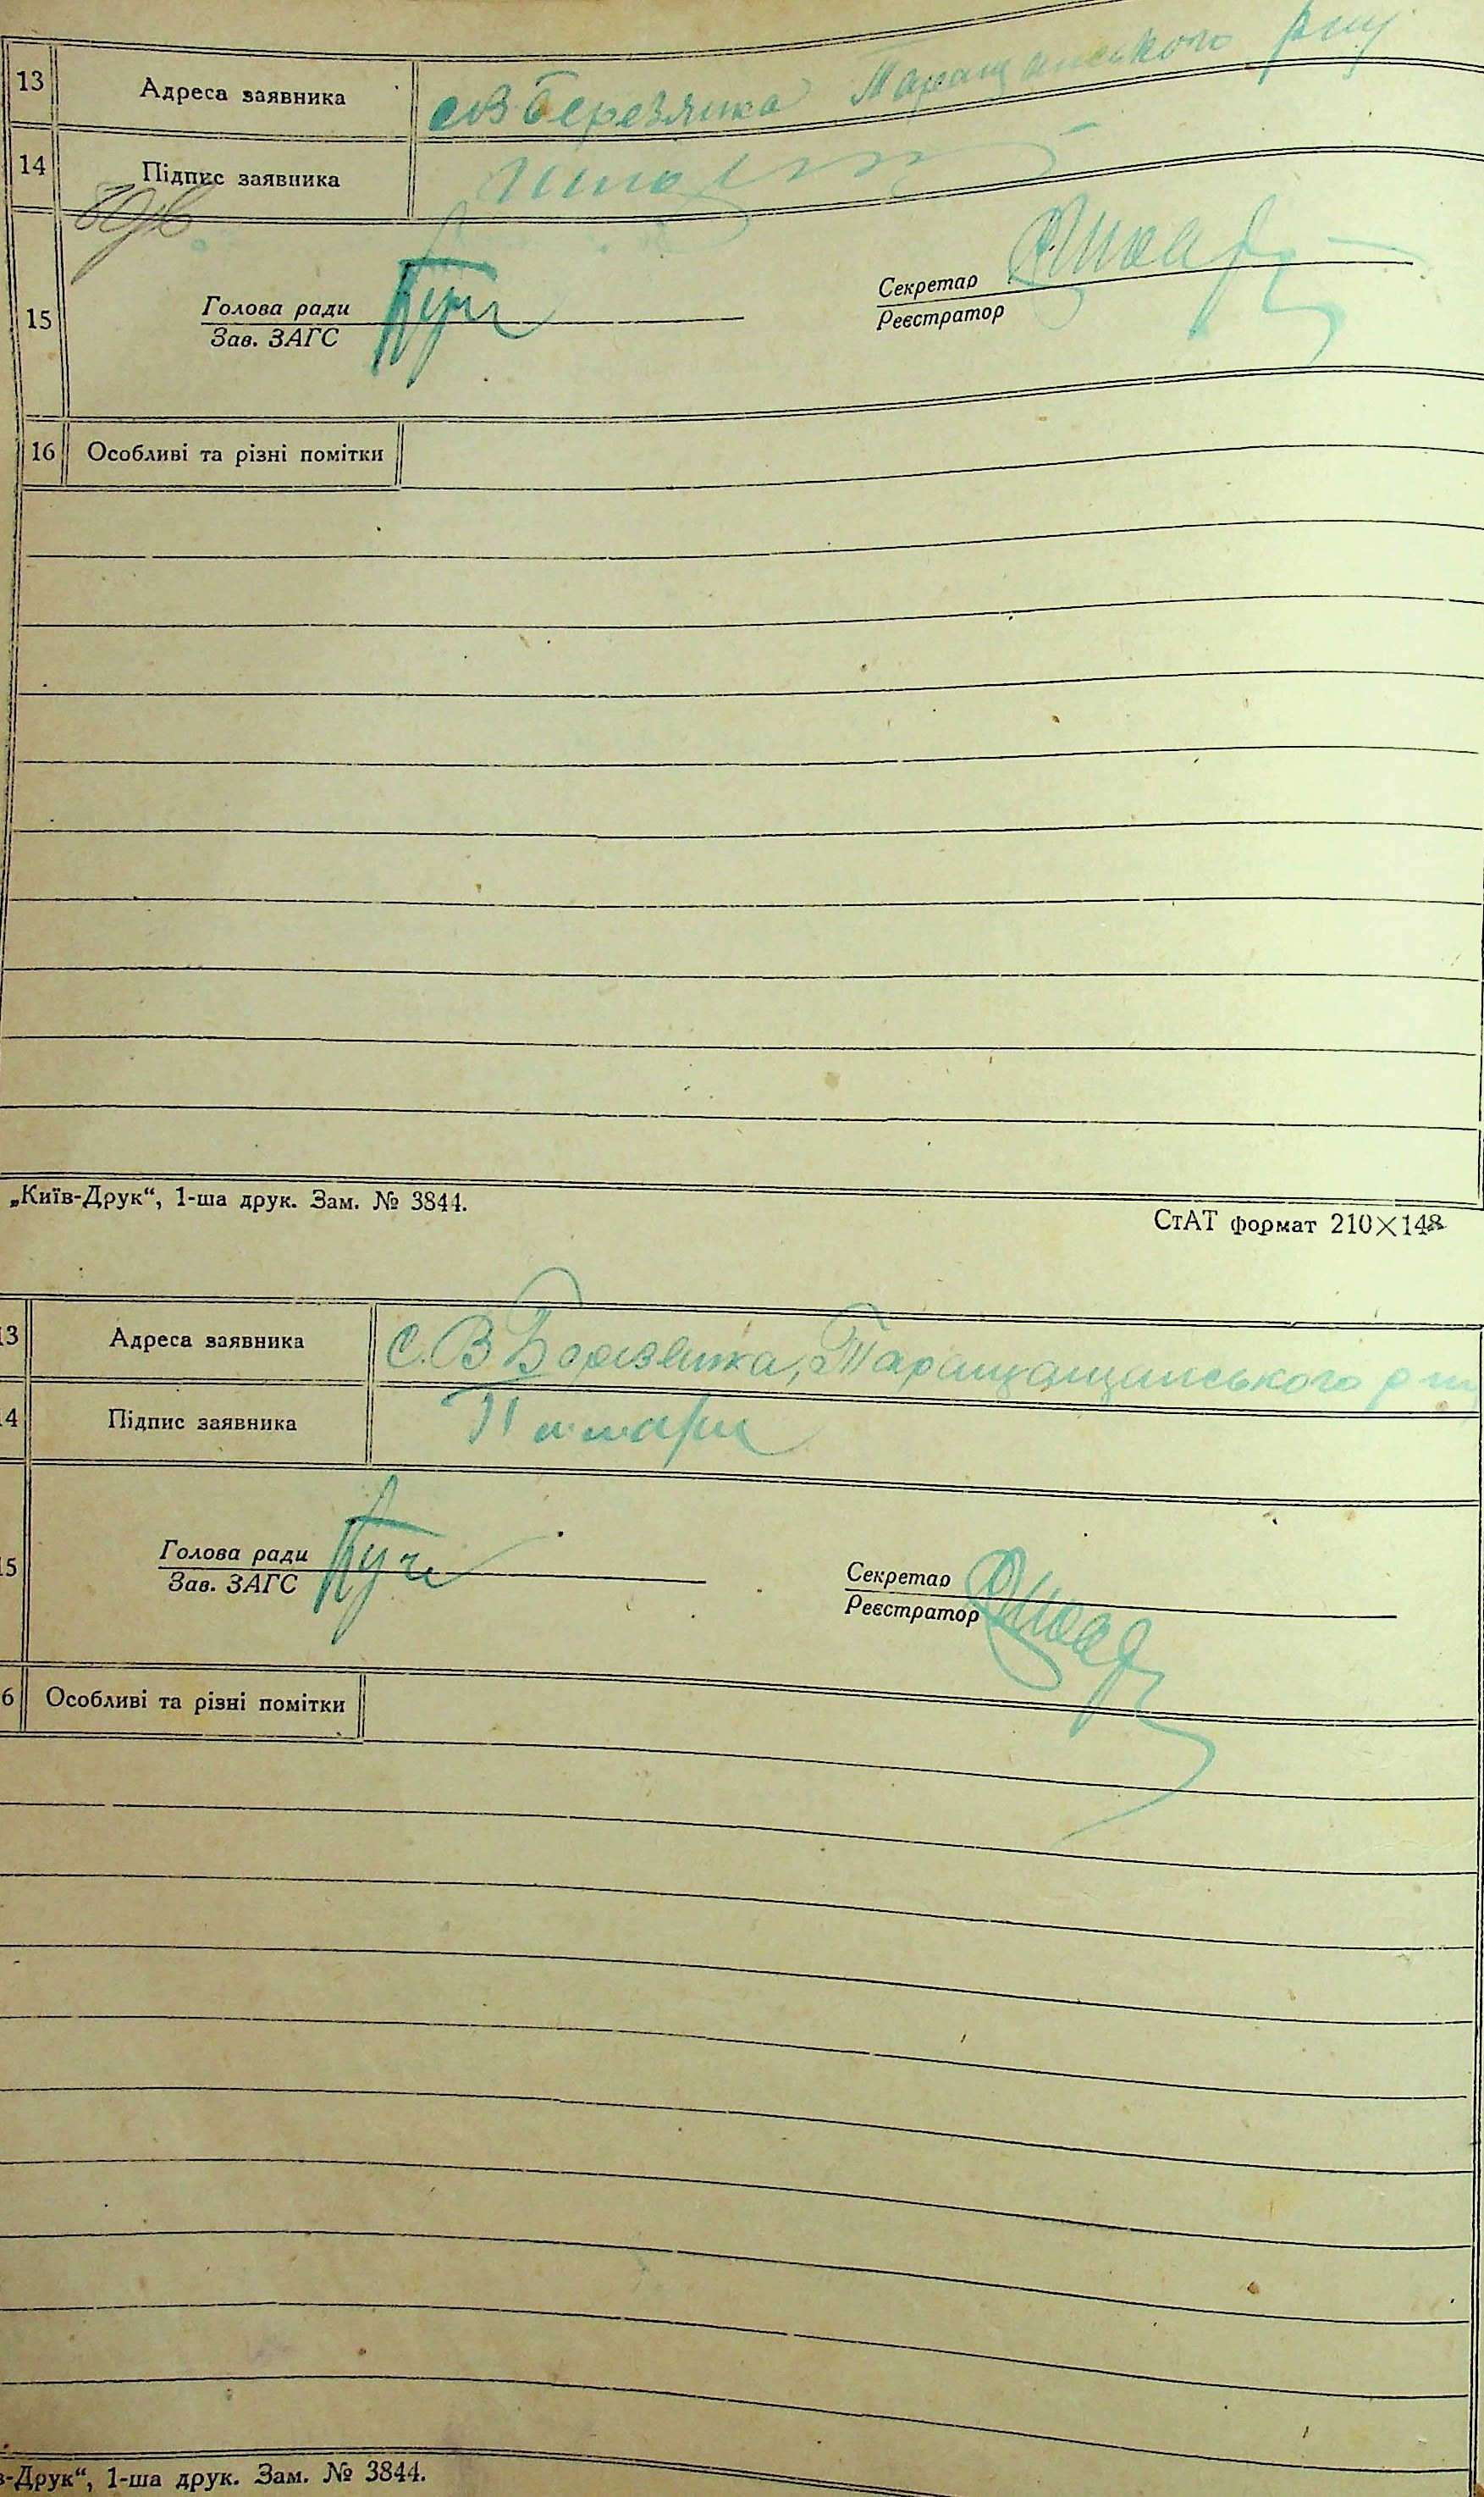 13 Адреса заявника с. В Березянка Таращанського р-ну
14 Підпис заявника
15 Голова ради Секретар
Зав. ЗАГС Реєстратор
16 Особливі та різні помітки
„Київ-Друк“, 1-ша друк. Зам. № 3844.
СтАТ формат 210×148
13 Адреса заявника С. В Березянка, Таращащанського р-ну
4 Підпис заявника
5 Голова ради Секретар
Зав. ЗАГС Реєстратор
6 Особливі та різні помітки
в-Друк“, 1-ша друк. Зам. № 3844.